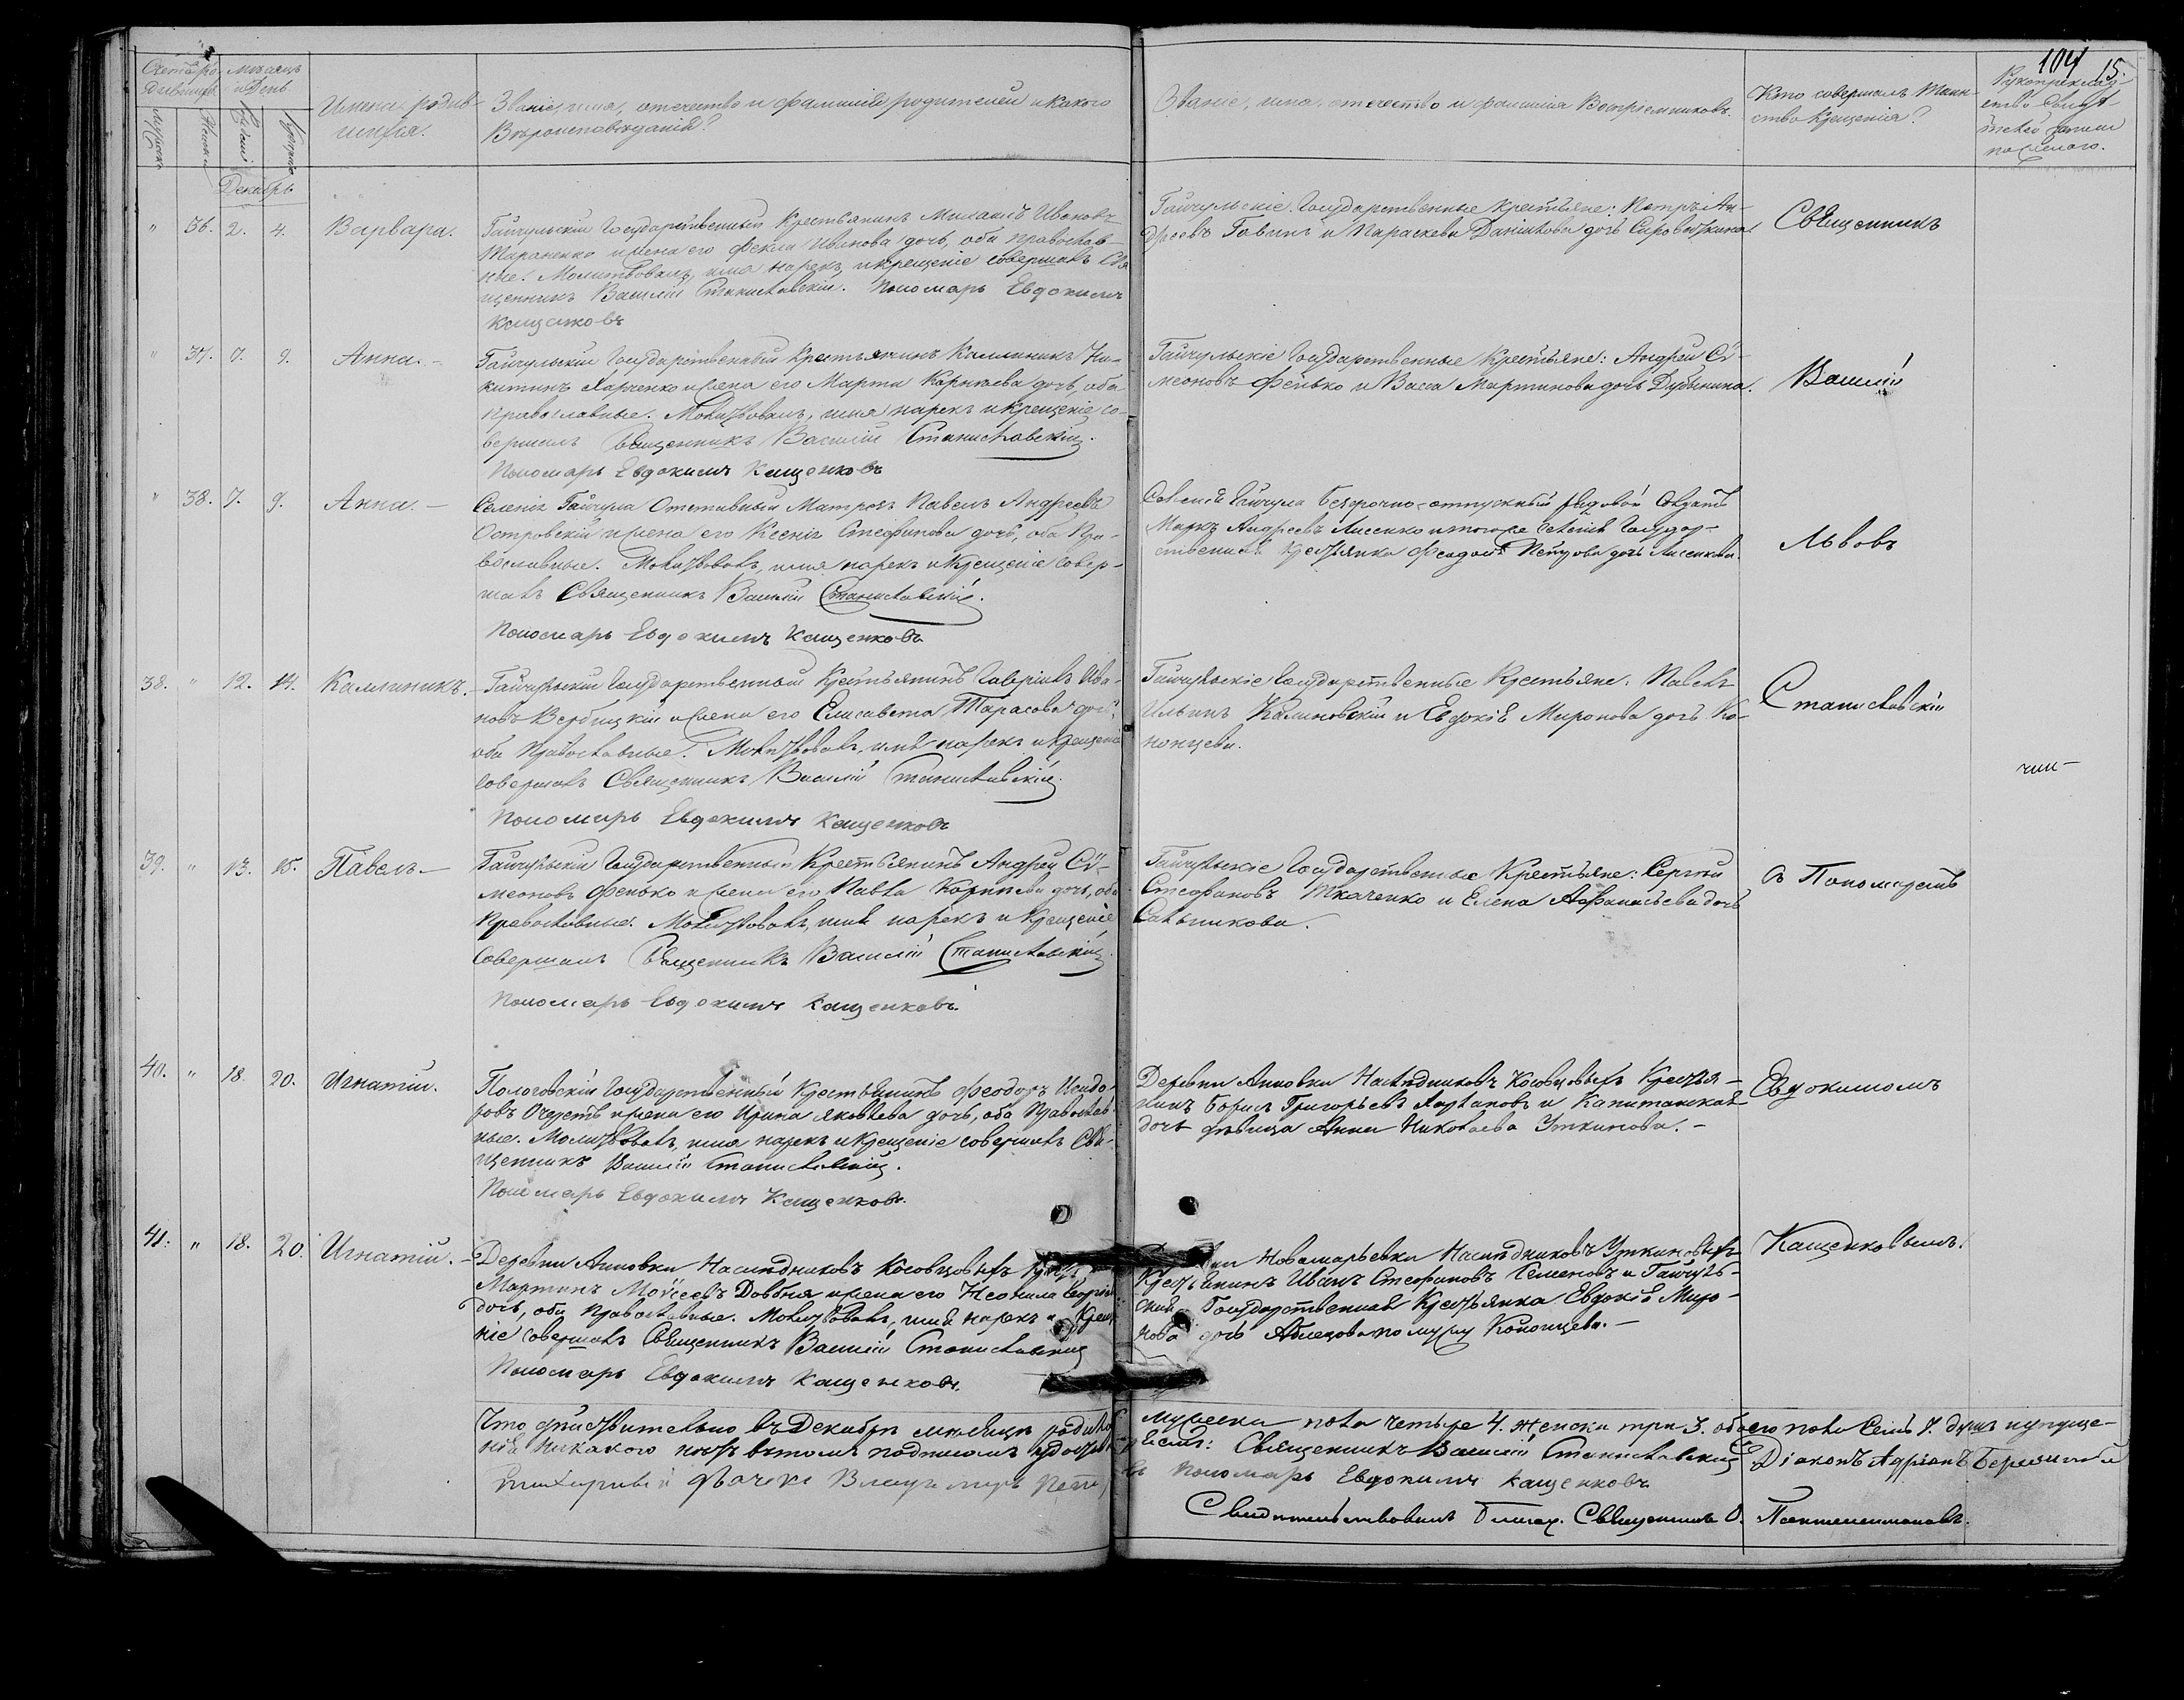 104 15.
Счетъ ро-
дившихся
Мѣсяцъ
и День
Мужеска
Женска
Рожденія
Крещенія
Имена родив-
шихся.
Званіе, имя, отечество и фамилія родителей и какого
Вѣроисповѣданія?
Званіе, имя, отечество и фамилія Воспріемниковъ.
Кто совершалъ Таин-
ство Крещенія?
Рукоприклад-
ство Свидѣ-
телей записи
по желанію.
Декабрь
" 36. 2. 4. Варвара.
Гайчульскій Государственный Крестьянинъ Михаилъ Ивановъ
Тараненко и жена его Фекла Иванова дочь, оба православ-
ные. Молитвовалъ, имя нарекъ и крещеніе совершалъ Свя
щенникъ Василій Станиславскій. Пономарь Евдокимъ
Кащенковъ
Гайчульскіе Государственные Крестьяне: Петръ Ан-
дреевъ и Параскева Даніилова дочь
Священникъ
" 37. 7. 9. Анна.-
Гайчульскій Государственный Крестьянинъ Каллиникъ Ни-
китинъ Харченко и жена его Марта Корнѣева дочь, оба
православные. Молитвовалъ, имя нарекъ и крещеніе со-
вершалъ Священникъ Василій Станиславскій.
Пономарь Евдокимъ Кащенковъ
Гайчульскіе Государственные Крестьяне: Андрей Сѵ-
меоновъ Фенько и Васса Мартинова дочь Дубинина.
Василій
" 38. 7. 9. Анна.-
Селенія Гайчула Отставный Матросъ Павелъ Андреевъ
Островскій и жена его Ксенія Стефанова дочь, оба Пра-
вославные. Молитвовалъ, имя нарекъ и Крещеніе совер-
шалъ Священникъ Василій Станиславскій.
Пономарь Евдокимъ Кащенковъ
Селенія Гайчула безсрочно-отпускный рядовой
Маркъ Андреевъ Лисенко и того же селенія Государ-
ственная крестьянка Петрова дочь Лисенкова.
Львовъ
38. " 12. 14. Каллиникъ.
Гайчульскій Государственный Крестьянинъ Гавріилъ Ива-
новъ Вербицкій и жена его Елисавета Тарасова дочь,
оба Православные. Молитвовалъ, имя нарекъ и крещеніе
совершалъ Священникъ Василій Станиславскій.
Пономарь Евдокимъ Кащенковъ
Гайчульскіе Государственные Крестьяне. Павелъ
Ильинъ Калиновскій и Евдокія Миронова дочь Ко-
нонцева.
Станиславскій
39. " 13. 15. Павелъ-
Гайчульскій Государственный Крестьянинъ Андрей Сѵ-
меоновъ Фенько и жена его Павла Карпова дочь, оба
Православные. Молитвовалъ, имя нарекъ и Крещеніе
совершалъ Священникъ Василій Станиславскій.
Пономарь Евдокимъ Кащенковъ.
Гайчульскіе Государственные Крестьяне: Сергѣй
Стефановъ Ткаченко и Елена Афанасьева дочь
Сальникова.
съ Пономаремъ
40. " 18. 20. Игнатій.
Пологовскій Государственный Крестьянинъ Феодоръ Исидо-
ровъ и жена его Ирина Яковлева дочь, оба Православ-
ные. Молитвовалъ, имя нарекъ и Крещеніе совершалъ Свя-
щенникъ Василій Станиславскій.
Пономарь Евдокимъ Кащенковъ.
Деревни Анновки Наслѣдниковъ Косовцовыхъ Крестья-
нинъ Борисъ Григорьевъ и Капитанская
дочь дѣвица Анна Николаева Уткинова.-
Евдокимомъ
41. " 18. 20. Игнатій.-
Деревни Анновки Наслѣдниковъ Косовцовыхъ
Мартинъ Моѵсеевъ Довбня и жена его Неонила
дочь, оба Православные. Молитвовалъ, имя нарекъ и Креще
ніе совершалъ Священникъ Василій Станиславскій
Пономарь Евдокимъ Кащенковъ.
Новомарьевки Наслѣдниковъ Уткиновыхъ
Крестьянинъ Иванъ Стефановъ Семеновъ и Гайчуль-
ская Государственная Крестьянка Евдокія Миро-
нова дочь по мужу Кононцева.-
Кащенковымъ.
Что дѣйствительно въ Декабрѣ мѣсяцѣ родило мужеска пола четыре 4. женска три 3. обоего пола семь 7. душъ и пропуще-
нія никакого нѣтъ въ томъ подписомъ Священникъ Василій Станиславскій Діаконъ Адріанъ
Пономарь Евдокимъ Кащенковъ
Свидѣтельствовалъ Благоч. Священникъ О. Пантелеимоновъ.